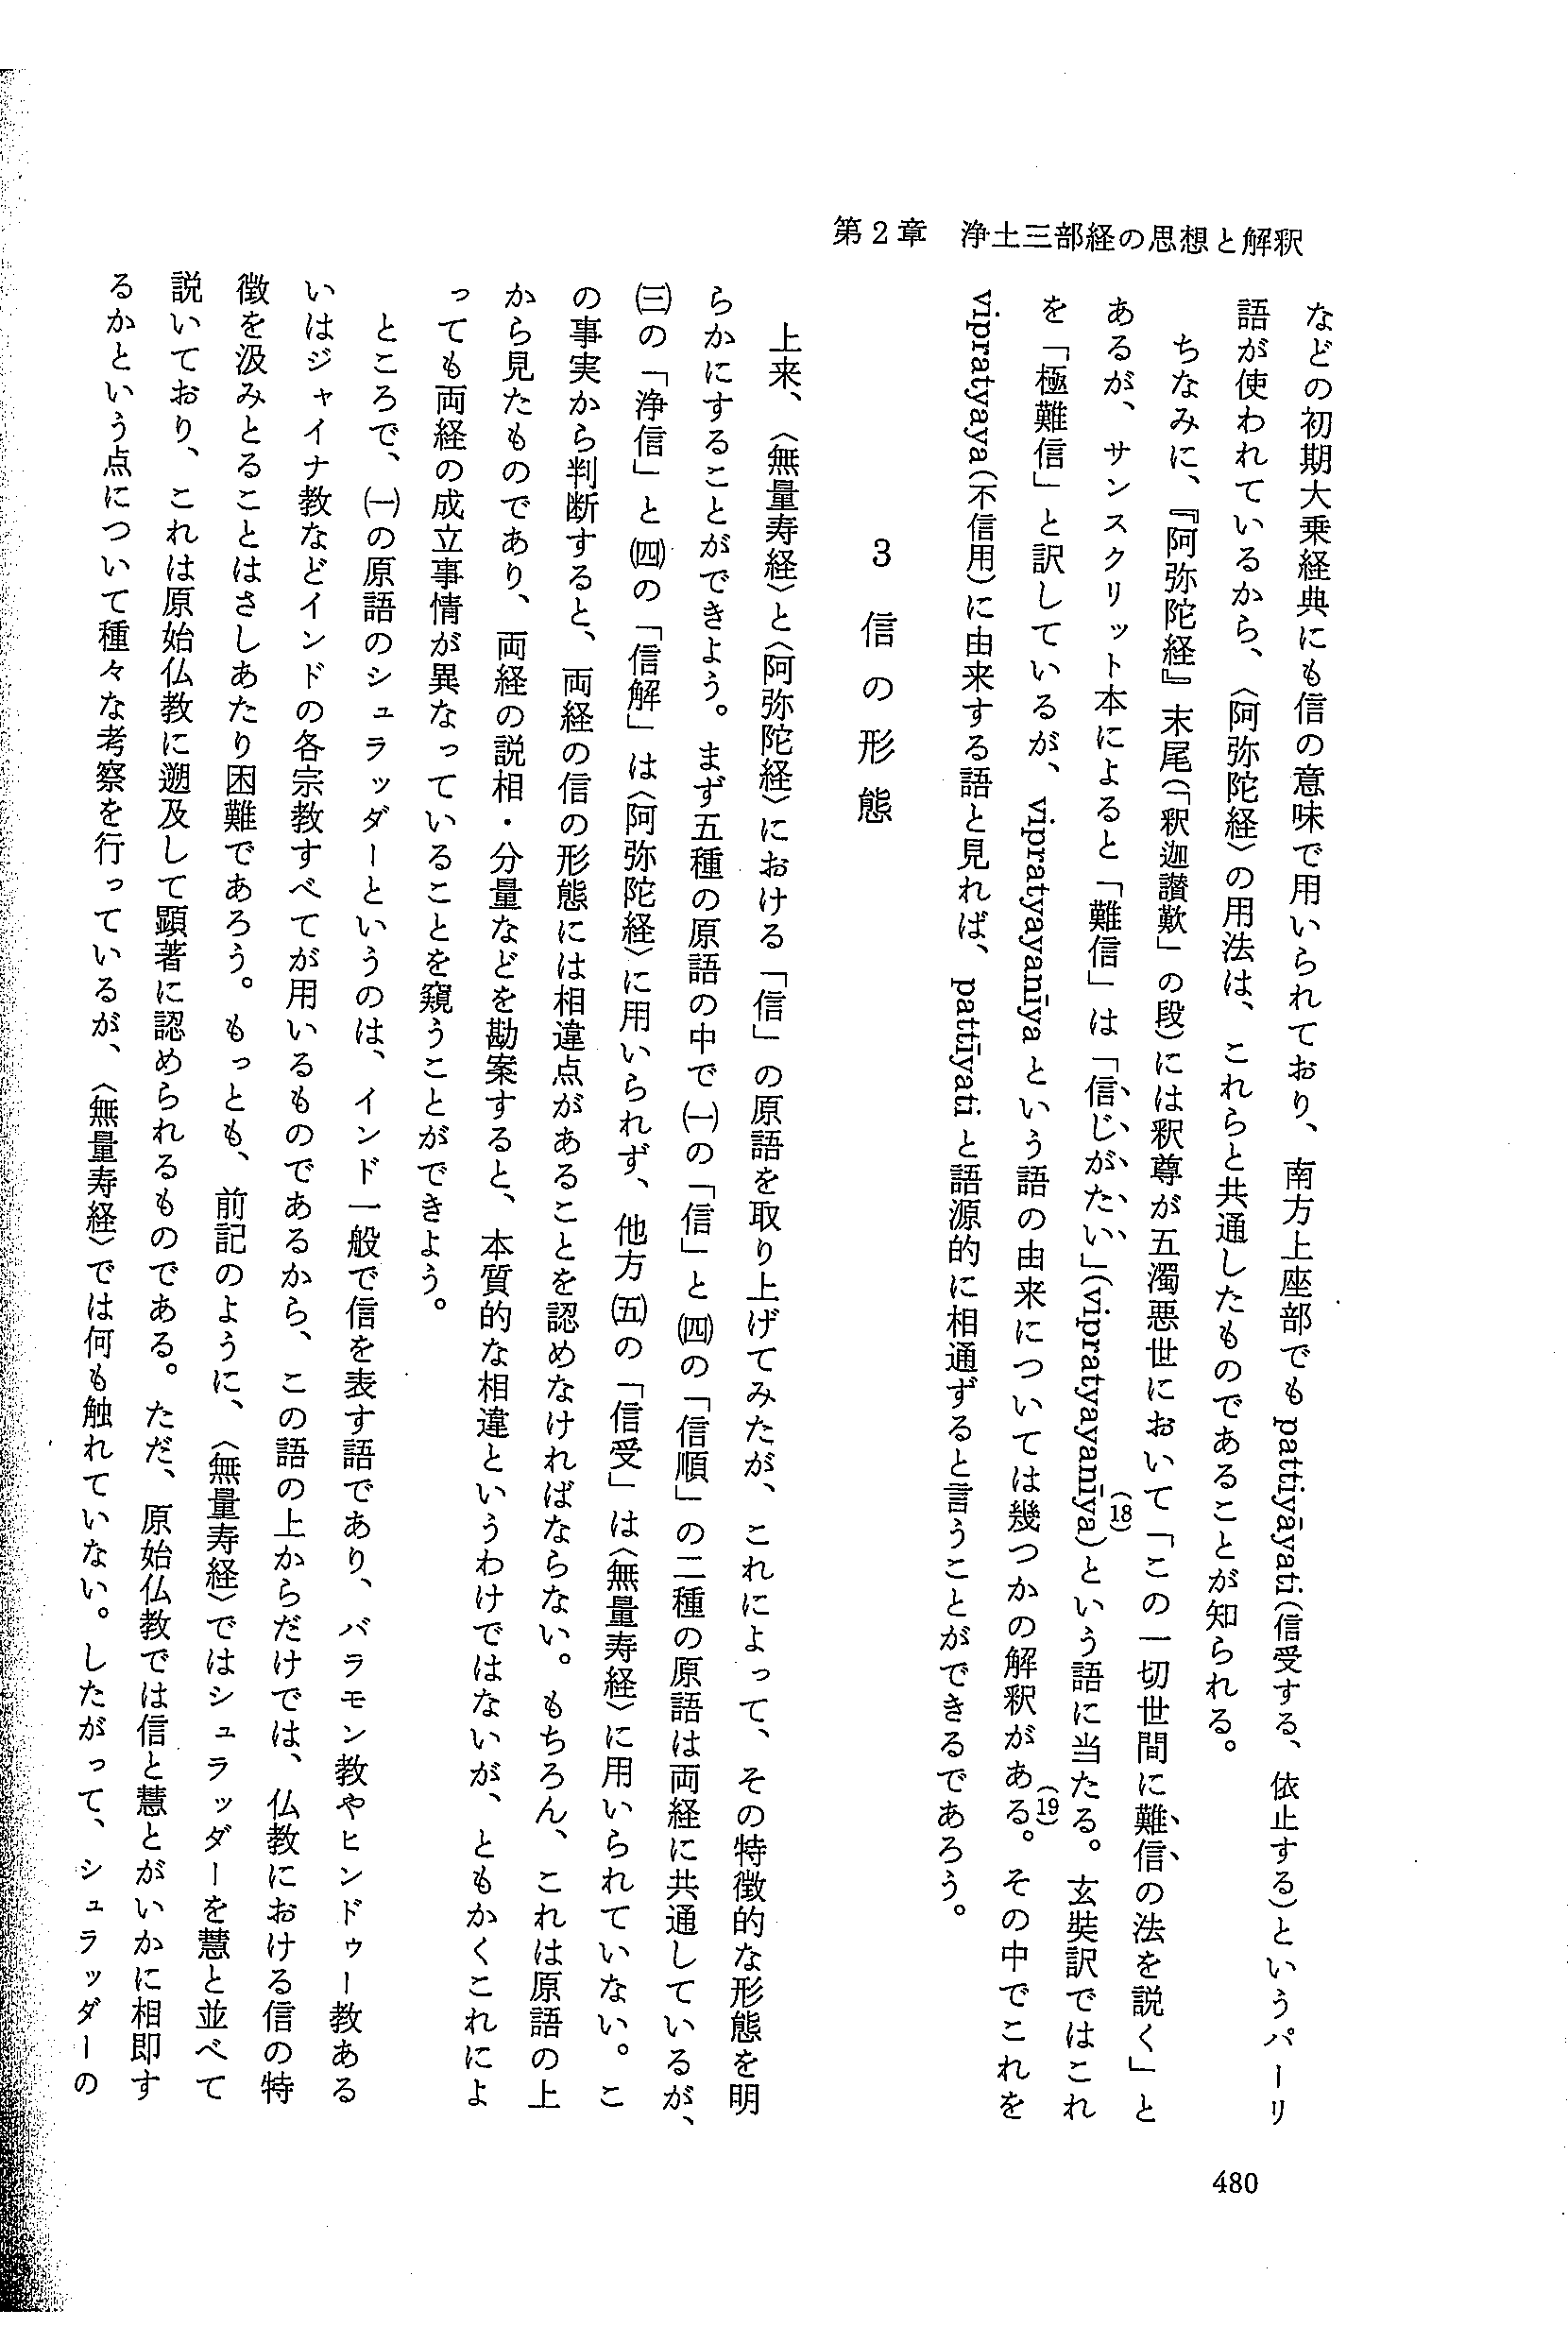 第2章　浄土三部経の思想と解釈
などの初期大乗経典にも信の意味で用いられており、南方上座部でも pattiyāyati（信受する、依止する）というパーリ
語が使われているから、〈阿弥陀経〉の用法は、これらと共通したものであることが知られる。
ちなみに、『阿弥陀経』末尾（「釈迦讃歎」の段）には釈尊が五濁悪世において「この一切世間に難信の法を説く」と
あるが、サンスクリット本によると「難信」は「信じがたい」（vipratyayanīya）(18)という語に当たる。玄奘訳ではこれ
を「極難信」と訳しているが、vipratyayanīya という語の由来については幾つかの解釈がある(19)。その中でこれを
vipratyaya（不信用）に由来する語と見れば、pattīyati と語源的に相通ずると言うことができるであろう。
3　信の形態
上来、〈無量寿経〉と〈阿弥陀経〉における「信」の原語を取り上げてみたが、これによって、その特徴的な形態を明
らかにすることができよう。まず五種の原語の中で㈠の「信」と㈣の「信順」の二種の原語は両経に共通しているが、
㈢の「浄信」と㈣の「信解」は〈阿弥陀経〉に用いられず、他方㈤の「信受」は〈無量寿経〉に用いられていない。こ
の事実から判断すると、両経の信の形態には相違点があることを認めなければならない。もちろん、これは原語の上
から見たものであり、両経の説相・分量などを勘案すると、本質的な相違というわけではないが、ともかくこれによ
っても両経の成立事情が異なっていることを窺うことができよう。
ところで、㈠の原語のシュラッダーというのは、インド一般で信を表す語であり、バラモン教やヒンドゥー教ある
いはジャイナ教などインドの各宗教すべてが用いるものであるから、この語の上からだけでは、仏教における信の特
徴を汲みとることはさしあたり困難であろう。もっとも、前記のように、〈無量寿経〉ではシュラッダーを慧と並べて
説いており、これは原始仏教に遡及して顕著に認められるものである。ただ、原始仏教では信と慧とがいかに相即す
るかという点について種々な考察を行っているが、〈無量寿経〉では何も触れていない。したがって、シュラッダーの
480